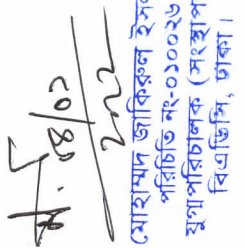 ০৪/০১
২০২২
মোহাম্মদ জাকিরুল ইস
পরিচিতি নং-০১০০২৬
যুগ্মপরিচালক (সংস্থাপ
বিএডিসি, ঢাকা।